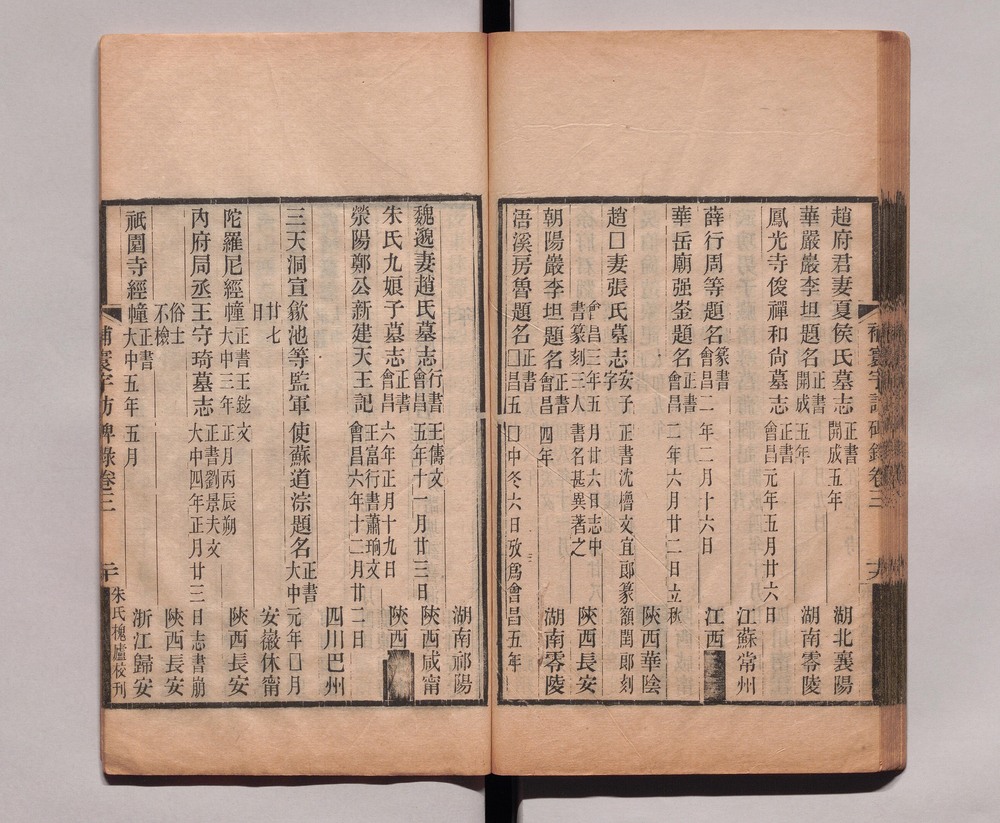 趙府君妻夏侯氏墓志 正書 開成五年 湖北襄陽
華嚴巖李坦題名 正書 開成五年 湖南零陵
鳳光寺俊禪和尙墓志 正書 會昌元年五月廿六日 江蘇常州
薛行周等題名 篆書 會昌二年二月十六日 江西
華岳廟强崟題名 正書 會昌二年六月廿二日立秋 陝西華陰
趙□妻張氏墓志 安子 正書沈櫓文宜郞篆額閏郞刻字
會昌三年五月廿六日志中書篆刻三人書名甚異著之 陝西長安
朝陽巖李坦題名 正書 會昌四年 湖南零陵
浯溪房魯題名 正書 □昌五□中冬六日攷爲會昌五年
湖南祁陽
魏邈妻趙氏墓志 行書王儔文 會昌五年十一月廿三日 陝西咸甯
朱氏九娘子墓志 正書 會昌六年正月十九日 陝西
滎陽鄭公新建天王記 王富行書蕭珦文 會昌六年十二月廿二日
四川巴州
三天洞宣歙池等監軍使蘇道淙題名 正書 大中元年□月廿七日 安徽休甯
陀羅尼經幢 正書王鉉文 大中三年正月丙辰朔 陝西長安
內府局丞王守琦墓志 正書劉景夫文 大中四年正月廿三日志書崩
俗士不檢 陝西長安
祇園寺經幢 正書 大中五年五月 浙江歸安
補寰宇訪碑錄卷三
朱氏槐廬校刊